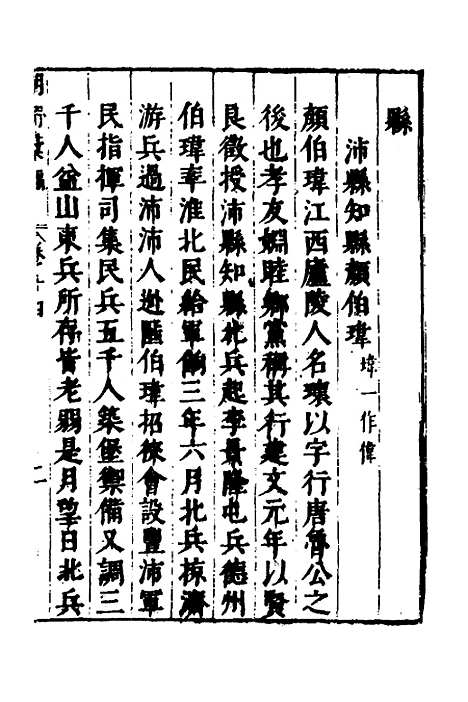 縣
沛縣知縣顏伯瑋 瑋一作偉
顏伯瑋江西廬陵人名瓌以字行唐魯公之
後也孝友婣睦鄉黨稱其行建文元年以賢
良徵授沛縣知縣北兵起李景隆屯兵德州
伯瑋率淮北民給軍餉三年六月北兵掠濟
游兵過沛沛人逃匿伯瑋招徠會設豐沛軍
民指揮司集民兵五千人築堡禦備又調三
千人益山東兵所存皆老弱是月望日北兵
卷十四